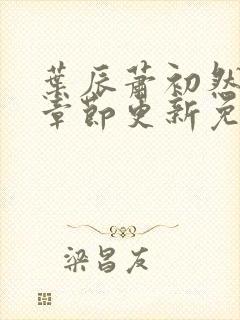 叶辰萧初然
章节更新免
梁昌友